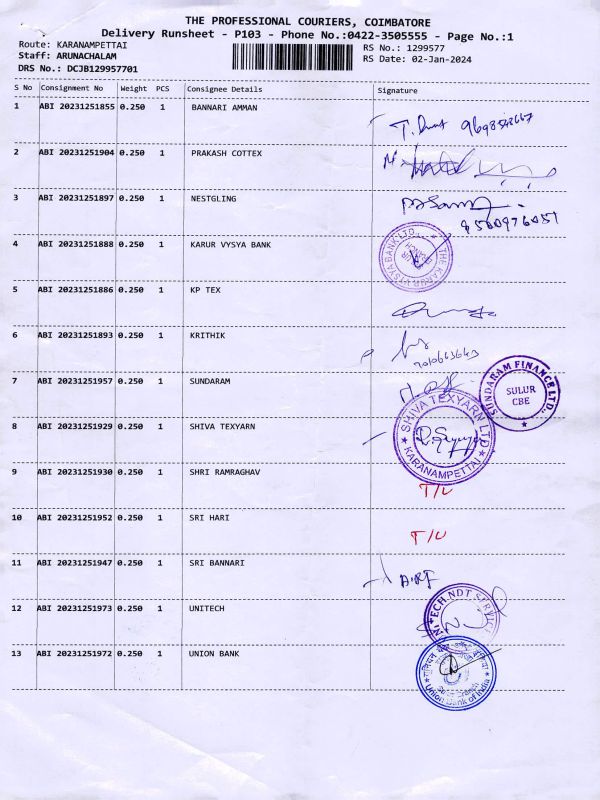 THE PROFESSIONAL COURIERS, COIMBATORE
Delivery Runsheet - P103 - Phone No.:0422-3505555 - Page No.:1
Route: KARANAMPETTAI
RS No.: 1299577
Staff: ARUNACHALAM
RS Date: 02-Jan-2024
DRS No.: DCJB129957701
S No Consignment No Weight PCS Consignee Details Signature
1 ABI 20231251855 0.250 1 BANNARI AMMAN
2 ABI 20231251904 0.250 1 PRAKASH COTTEX
3 ABI 20231251897 0.250 1 NESTGLING
4 ABI 20231251888 0.250 1 KARUR VYSYA BANK
THE KARUR VYSYA BANK LTD.,
5 ABI 20231251886 0.250 1 KP TEX
6 ABI 20231251893 0.250 1 KRITHIK
7 ABI 20231251957 0.250 1 SUNDARAM
SUNDARAM FINANCE LTD.,
SULUR
CBE
8 ABI 20231251929 0.250 1 SHIVA TEXYARN
SHIVA TEXYARN LTD
KARANAMPETTAI
9 ABI 20231251930 0.250 1 SHRI RAMRAGHAV
T/L
10 ABI 20231251952 0.250 1 SRI HARI
T/L
11 ABI 20231251947 0.250 1 SRI BANNARI
12 ABI 20231251973 0.250 1 UNITECH
13 ABI 20231251972 0.250 1 UNION BANK
Union Bank of India